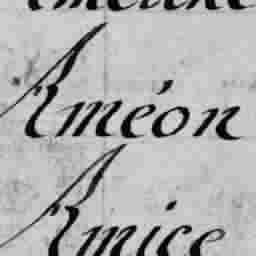 Améon
Amice